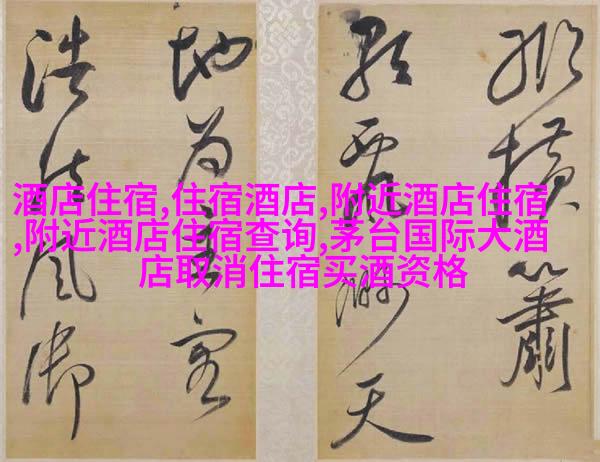 酒店住宿,住宿酒店,附近酒店住宿
,附近酒店住宿查询,茅台国际大酒
店取消住宿买酒资格
横簫
洲天
地為
浩風御